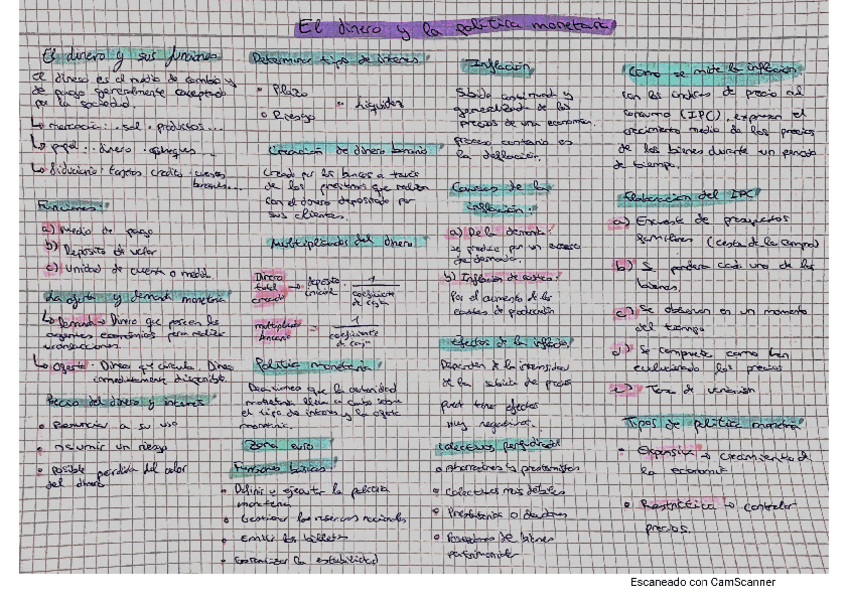 El dinero y la política monetaria
El dinero y sus funciones
el dinero es el medio de cambio y
de pago generalmente aceptado
por la sociedad.
↳ mercancía: sal · productos...
↳ papel: dinero · cheques
↳ fiduciario: tarjetas crédito · cuentas
bancarias...
Funciones
a) Medio de pago
b) Depósito de valor
c) Unidad de cuenta o medida
La oferta y demanda monetaria
↳ Demanda → Dinero que poseen los
agentes económicos para realizar
transacciones.
↳ Oferta · Dinero que circula. Dinero
inmediatamente disponible.
Precio del dinero y interés
• Renunciar a su uso
• Asumir un riesgo
• posible pérdida del valor
del dinero
Determinar tipo de interés
• Plazo
• Liquidez
• Riesgo
Creación de dinero bancario
Creado por los bancos a través
de los préstamos que realizan
con el dinero depositado por
sus clientes.
Multiplicador del dinero
Dinero total creado → depósito inicial · 1 / coeficiente de caja
multiplicador = 1 / coeficiente de caja
Política monetaria
Decisiones que la autoridad
monetaria lleva a cabo sobre
el tipo de interés y la oferta
monetaria.
Zona euro
Funciones básicas
• Definir y ejecutar la política
monetaria
• Gestionar las reservas nacionales
• emitir los billetes
• Garantizar la estabilidad
Inflación
Subida continuada y
generalizada de los
precios de una economía.
proceso contrario es
la deflación.
Causas de la
inflación:
a) De la demanda:
se produce por un exceso
de demanda.
b) Inflación de costes:
Por el aumento de los
costes de producción
efectos de la inflación
Dependen de la intensidad
de la subida de precios
puede tener efectos
muy negativos.
Colectivos perjudicados
• Ahorradores y prestamistas
• Colectivos más débiles
• Prestatarios o deudores
• Poseedores de bienes
patrimoniales
Como se mide la inflación
con los índices de precio al
consumo (IPC), expresan el
crecimiento medio de los precios
de los bienes durante un periodo
de tiempo.
Elaboración del IPC
a)
similares (cesta de la compra)
b) Se pondera cada uno de los
bienes.
c) Se observan en un momento
del tiempo
d) Se comprueba como han
evolucionado los precios
e) Tasa de variación
Tipos de política monetaria
• Expansiva → crecimiento de
la economía
• Restrictiva → controlar
precios.
Escaneado con CamScanner